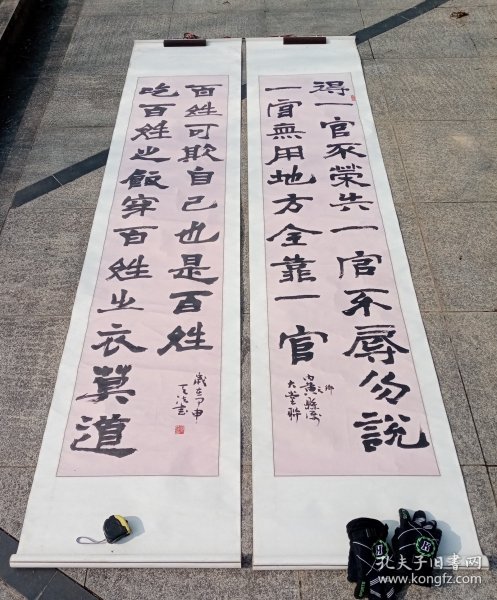 得一官不榮失一官不辱勿說
一官無用地方全靠一官
大堂聯
吃百姓之飯穿百姓之衣莫道
百姓可欺自己也是百姓
歲在甲申
孔夫子旧书网
www.kongfz.com